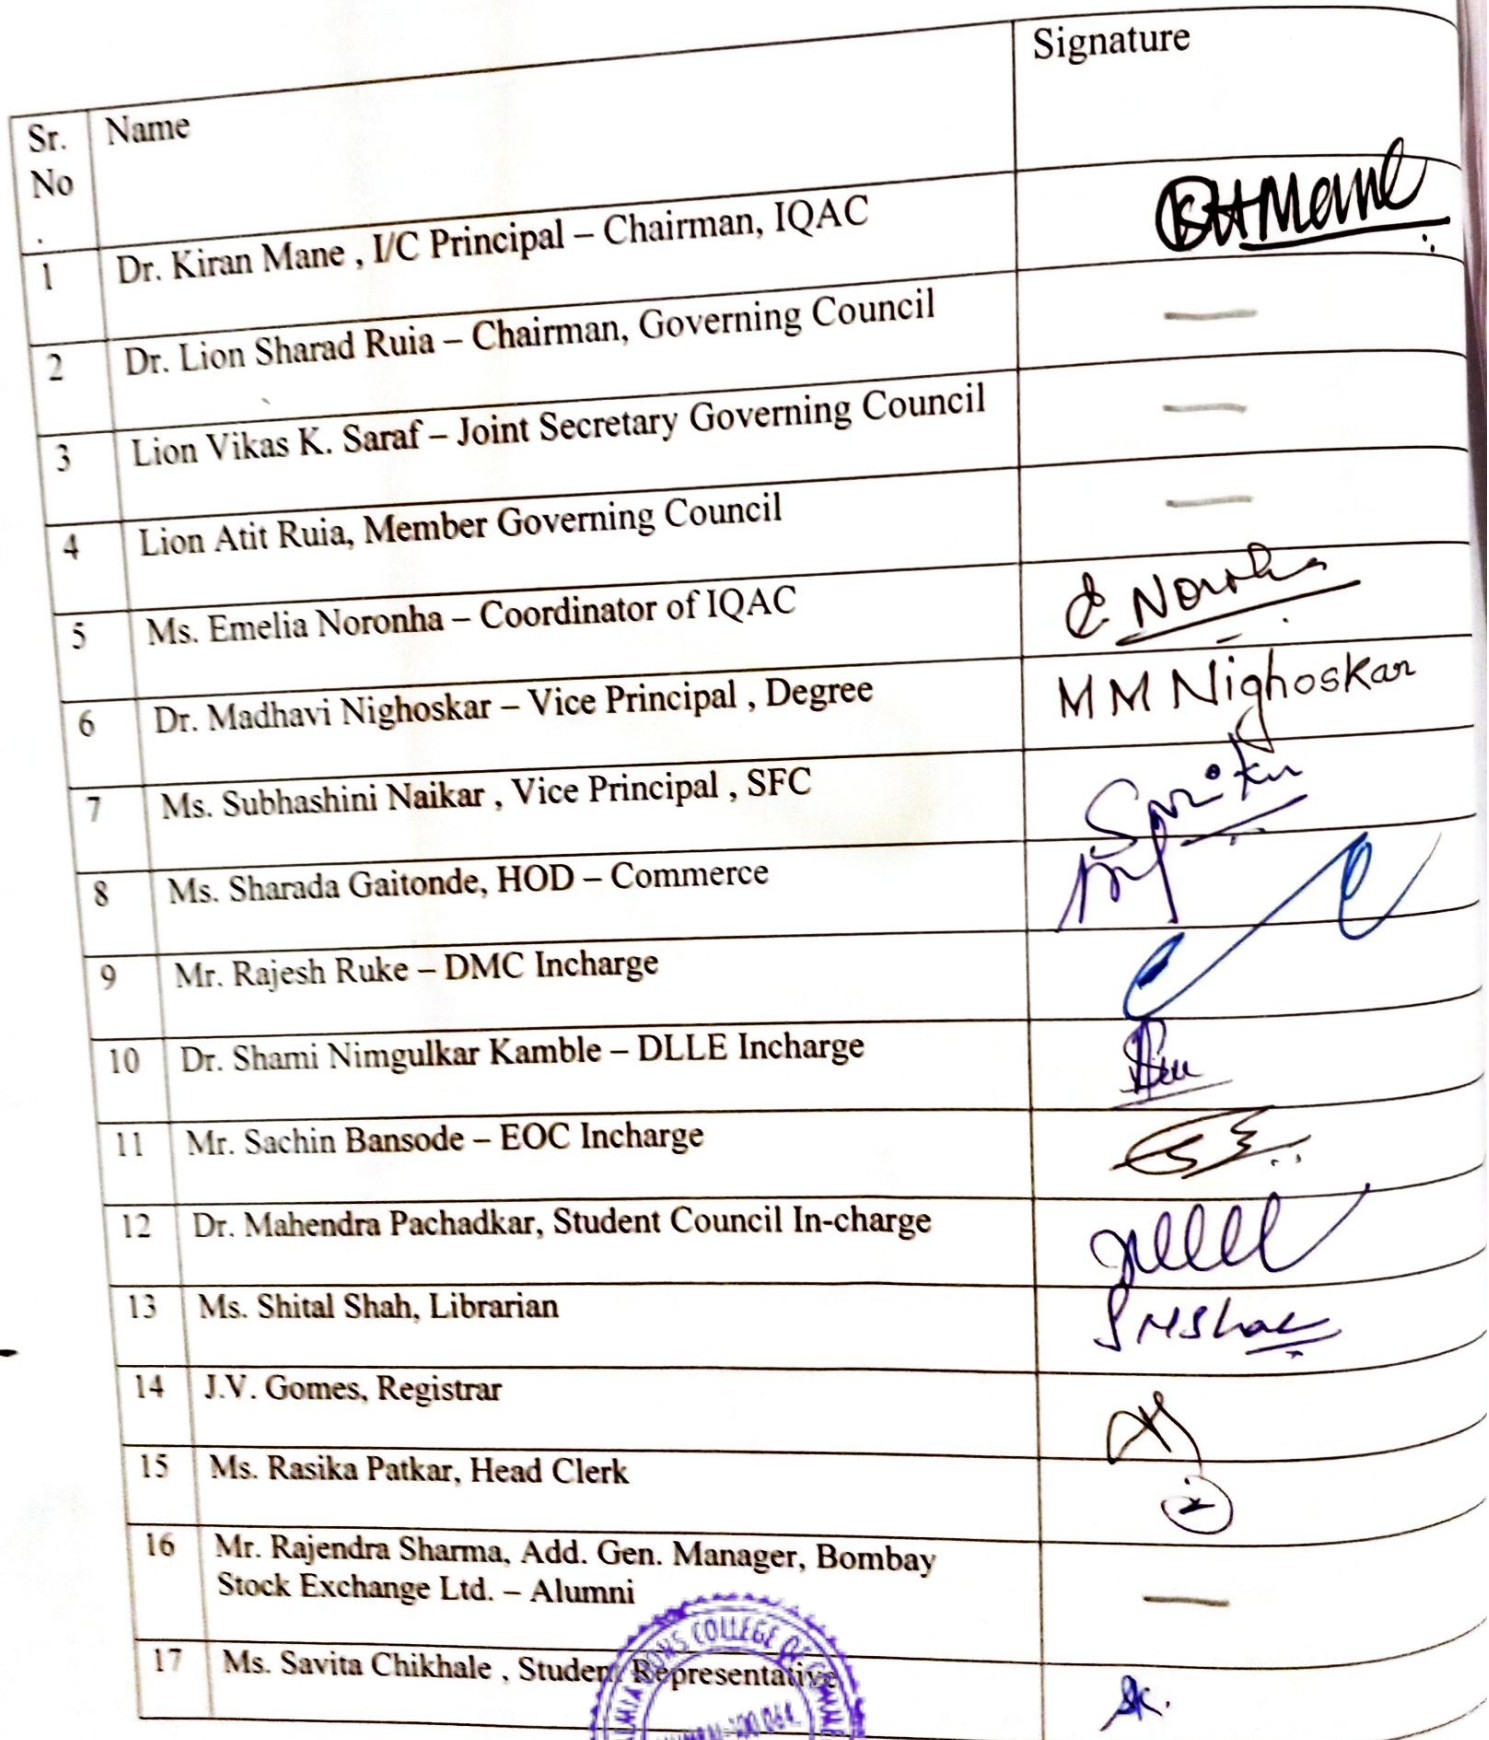 Sr. No . Name Signature
1 Dr. Kiran Mane , I/C Principal – Chairman, IQAC
2 Dr. Lion Sharad Ruia – Chairman, Governing Council —
3 Lion Vikas K. Saraf – Joint Secretary Governing Council —
4 Lion Atit Ruia, Member Governing Council —
5 Ms. Emelia Noronha – Coordinator of IQAC E Noronha
6 Dr. Madhavi Nighoskar – Vice Principal , Degree M M Nighoskar
7 Ms. Subhashini Naikar , Vice Principal , SFC
8 Ms. Sharada Gaitonde, HOD – Commerce
9 Mr. Rajesh Ruke – DMC Incharge
10 Dr. Shami Nimgulkar Kamble – DLLE Incharge
11 Mr. Sachin Bansode – EOC Incharge
12 Dr. Mahendra Pachadkar, Student Council In-charge
13 Ms. Shital Shah, Librarian
14 J.V. Gomes, Registrar
15 Ms. Rasika Patkar, Head Clerk
16 Mr. Rajendra Sharma, Add. Gen. Manager, Bombay
Stock Exchange Ltd. – Alumni —
17 Ms. Savita Chikhale , Student Representative
COLLEGE OF